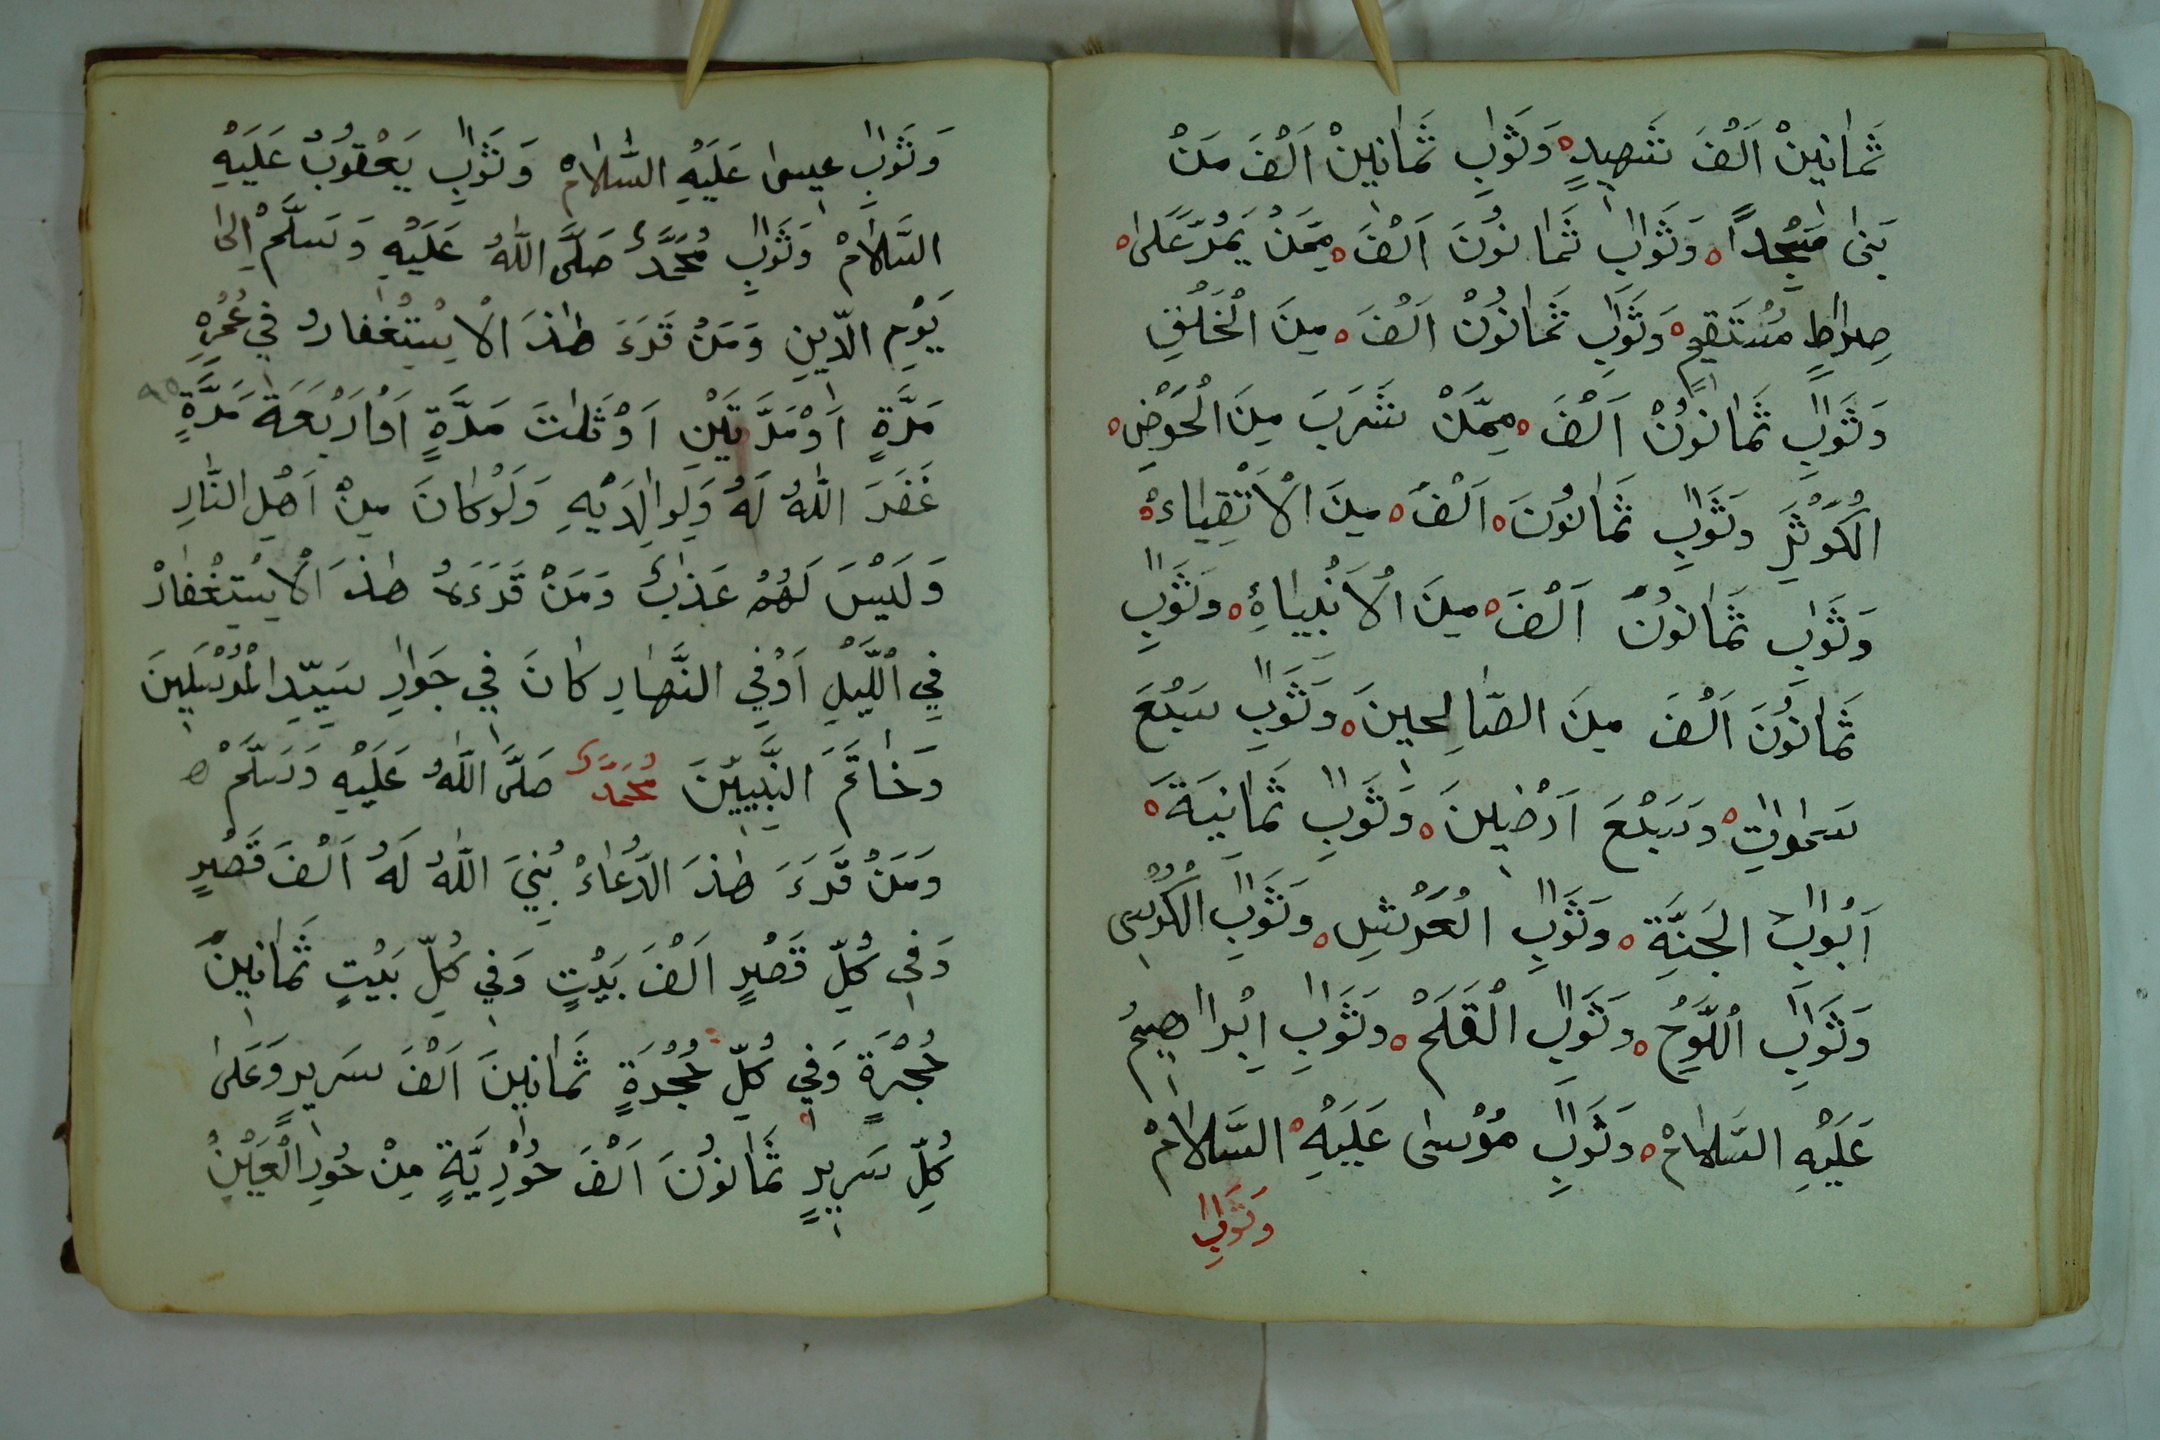 ثَمَانِينْ اَلْفَ شَهِيدٍ وَثَوٰابِ ثَمَانِينْ اَلْفَ مَنْ
بَنٰى مَسْجِداً وَثَوٰابِ ثَمَانُونَ اَلْفَ مِمَنْ يَمُرّ عَلٰى
صِرٰاطٍ مُسْتَقِيمٍ وَثَوٰابِ ثَمَانُونْ اَلْفَ مِنَ الْخَلْقِ
وَثَوٰابِ ثَمَانُونْ اَلْفَ مِمَّنْ شَرَبَ مِنَ الْحَوْضِ
الْكَوْثَرِ وَثَوٰابِ ثَمَانُونَ اَلْفَ مِنَ الْاَتْقِيٰاءْ
وَثَوٰابِ ثَمَانُونَ اَلْفَ مِنَ الْاَنْبِيٰاءِ وَثَوٰابِ
ثَمَانُونَ اَلْفَ مِنَ الصَّالِحِينَ وَثَوٰابِ سَبْعَ
سَمٰوٰاتٍ وَسَبْعَ اَرَضِينَ وَثَوٰابِ ثَمَانِيَةَ
اَبْوٰابْ الجَنَّةِ وَثَوٰابِ الْعَرْشِ وَثَوٰابِ الْكُرْسِى
وَثَوٰابِ اللَّوْحْ وَثَوٰابِ الْقَلَمْ وَثَوٰابِ اِبْرٰاهِيمُ
عَلَيْهِ السَّلٰامْ وَثَوٰابِ مُوْسٰى عَلَيْهِ السَّلٰامْ
وَثَوٰابِ
وَثَوٰابِ عِيسٰى عَلَيْهِ السَّلٰامْ وَثَوٰابِ يَعْقُوبُ عَلَيْهِ
السَّلٰامْ وَثَوٰابِ مُحَمَّدٌ صَلَّى اللّٰهُ عَلَيْهِ وَسَلَّمْ اِلىٰ
يَوْمِ الدّينِ وَمَنْ قَرَءَ هٰذَ الْاِسْتِغْفَارُ فِي عُمْرِهِ
مَرَّةٍ اَوْ مَرَّتَيْنِ اَوْ ثَلٰثَ مَرَّةٍ اَوْ اَرْبَعَةَ مَرَّةٍ
غَفَرَ اللّٰهُ لَهُ وَلِوٰالِدَيْهِ وَلَوْ كَانَ مِنْ اَهْلِ النَّارِ
وَلَيْسَ لَهُمْ عَذٰابٌ وَمَنْ قَرَءَهُ هٰذَ الْاِسْتِغْفَارْ
فِي الْلَّيْلِ اَوْفِي النَّهٰارِ كٰانَ فِي جَوٰارِ سَيِّدِ الْمُرْسَلِينَ
وَخٰاتَمَ النَّبِيّينَ مُحَمَّدٌ صَلَّى اللّٰهُ عَلَيْهِ وَسَلَّمْ
وَمَنْ قَرَءَ هٰذَ الدُّعٰاءْ بُنِيَ اللّٰهُ لَهُ اَلْفَ قَصْرٍ
وَفِى كُلِّ قَصْرٍ اَلْفَ بَيْتٍ وَفِي كُلِّ بَيْتٍ ثَمَانِينَ
حُجْرَةٍ وَفِي كُلِّ حُجْرَةٍ ثَمَانِينَ اَلْفَ سَرِيرٍ وَعَلٰى
كُلِّ سَرِيرٍ ثَمَانُونَ اَلْفَ حُوْرِيَّةٍ مِنْ حُورِ الْعَيْنِ